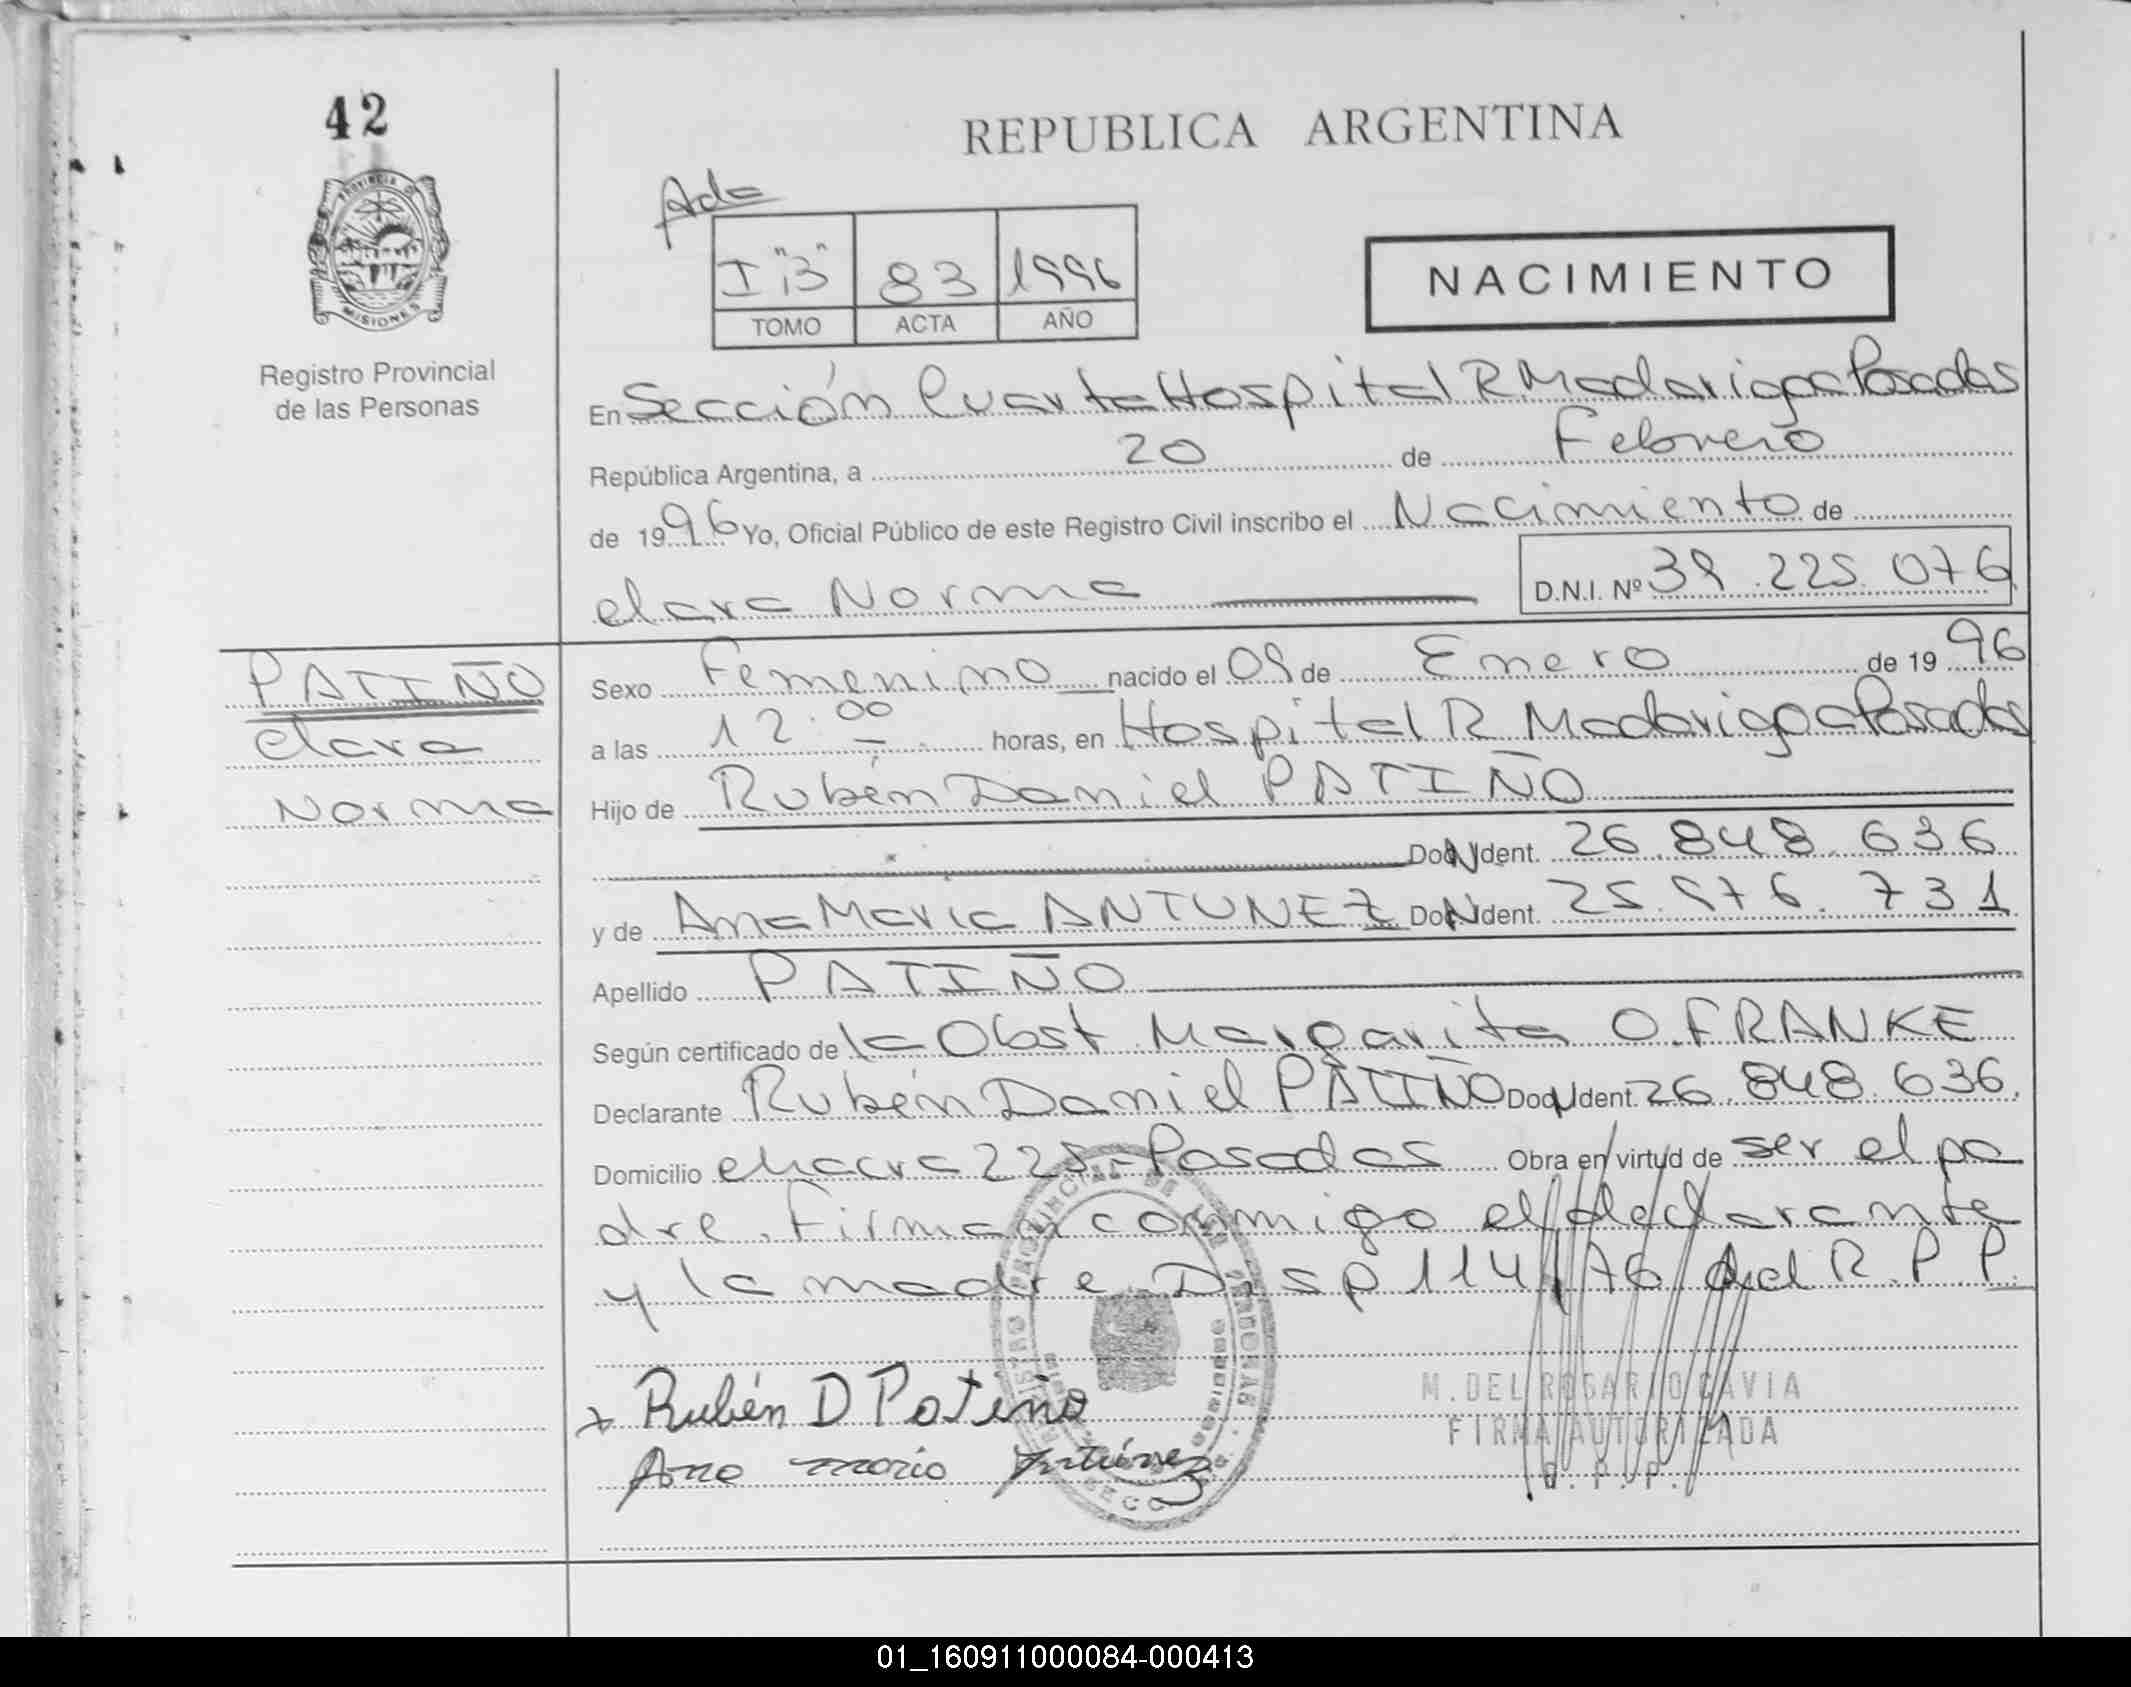 42
REPUBLICA ARGENTINA
PROVINCIA D
MISIONES
Registro Provincial
de las Personas
Ada
I "B" 83 1996
TOMO ACTA AÑO
NACIMIENTO
En Sección Cuarta Hospital R Madariaga Posadas
República Argentina, a 20 de Febrero
de 1996 Yo, Oficial Público de este Registro Civil inscribo el Nacimiento de
Clara Norma
D.N.I. Nº 39.225.076
PATIÑO
Clara
Norma
Sexo Femenino nacido el 09 de Enero de 1996
a las 12:00 horas, en Hospital R Madariaga Posadas
Hijo de Rubén Daniel PATIÑO
DocNIdent. 26.848.636
y de Ana Maria ANTUNEZ DocNIdent. 25.976.731
Apellido PATIÑO
Según certificado de la Obst Margarita O. FRANKE
Declarante Rubén Daniel PATIÑO DocNIdent. 26.848.636.
Domicilio Chacra 225 - Posadas Obra en virtud de ser el pa
dre. Firman conmigo el declarante
y la madre Disp 114/76 del R.P.P.
Rubén D Patiño
Ana maria Antúnez
M. DEL ROSARIO GAVIA
FIRMA AUTORIZADA
R. P. P.
01_160911000084-000413